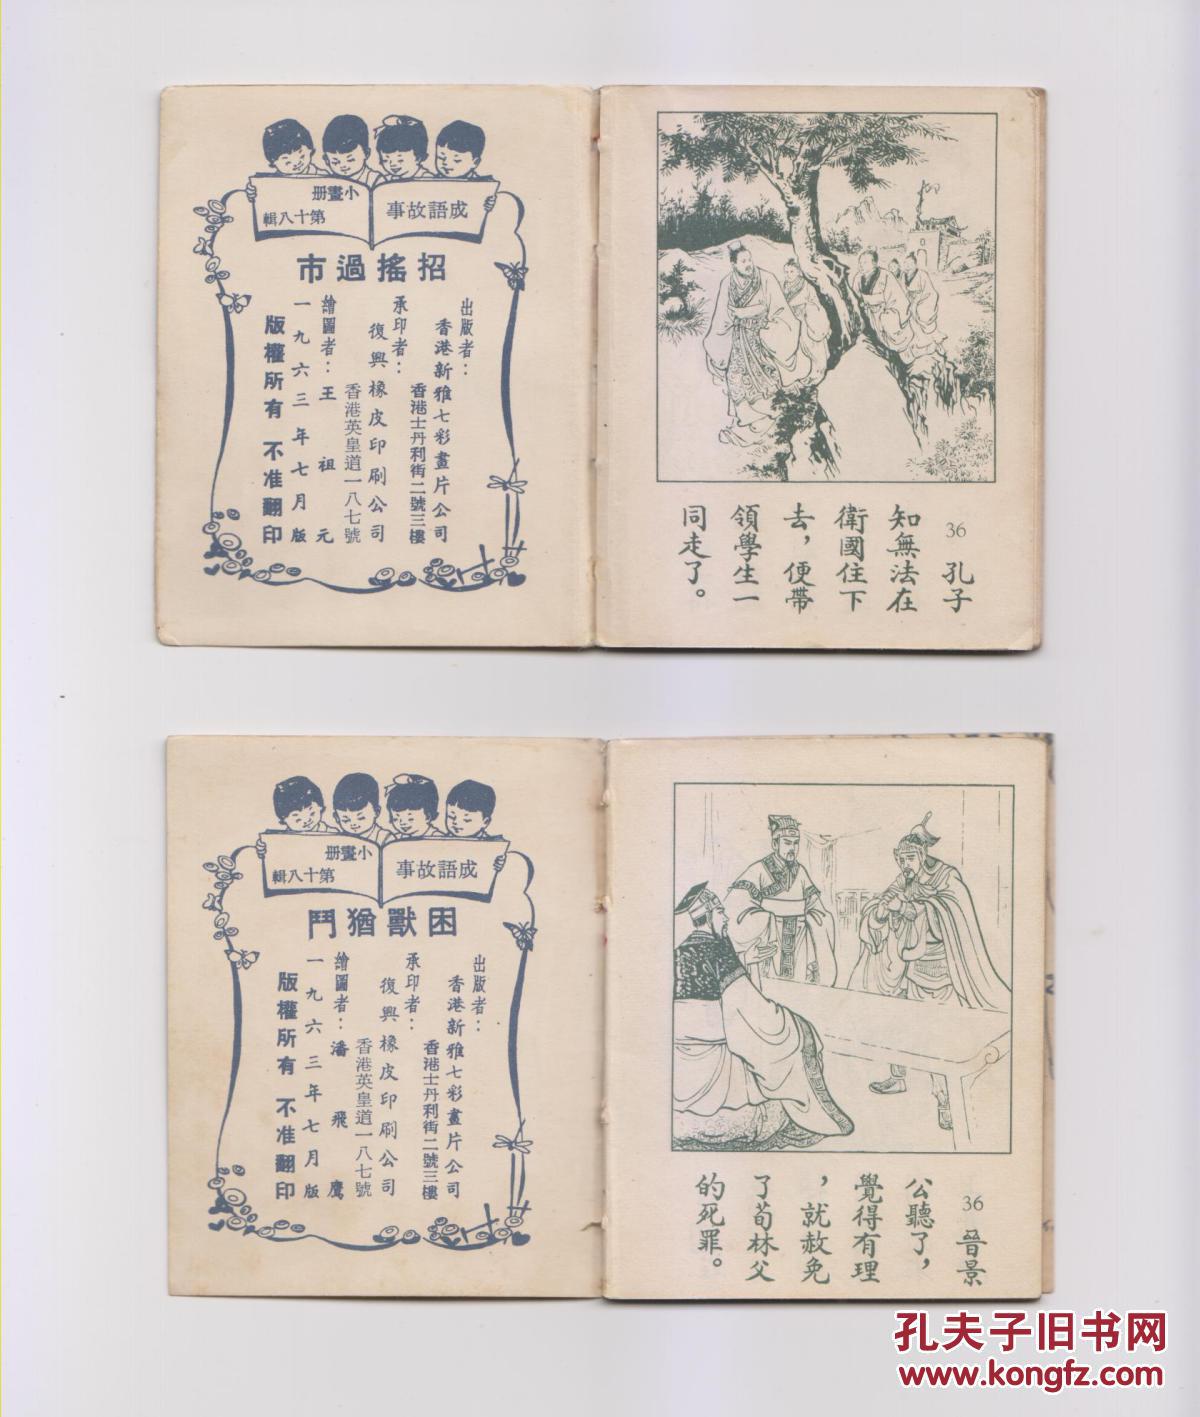 成語故事
小畫册
第十八輯
招搖過市
出版者：
香港新雅七彩畫片公司
香港士丹利街二號三樓
承印者：
復興橡皮印刷公司
香港英皇道一八七號
繪圖者：王祖元
一九六三年七月版
版權所有 不准翻印
36 孔子
知無法在
衛國住下
去，便帶
領學生一
同走了。
成語故事
小畫册
第十八輯
困獸猶鬥
出版者：
香港新雅七彩畫片公司
香港士丹利街二號三樓
承印者：
復興橡皮印刷公司
香港英皇道一八七號
繪圖者：潘飛鷹
一九六三年七月版
版權所有 不准翻印
36 晉景
公聽了，
覺得有理
，就赦免
了荀林父
的死罪。
孔夫子旧书网
www.kongfz.com